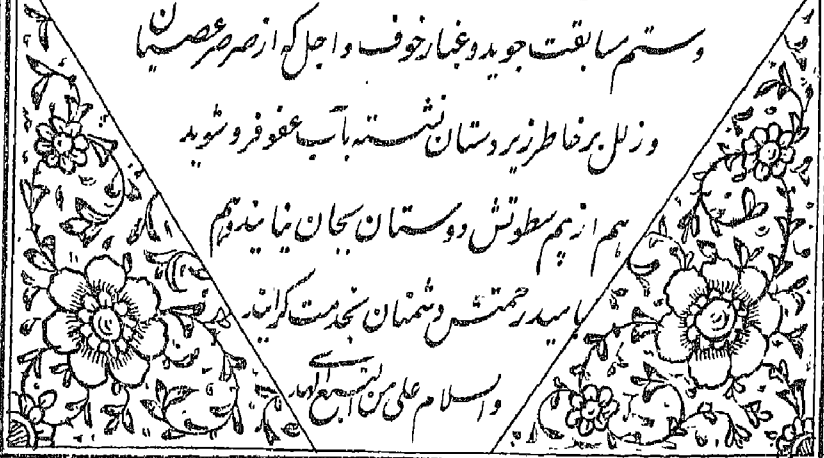 وستم مسابقت جوید و غبار خوف و اجل که از صرصر عصیان
و زلل بر خاطر زیردستان نشسته بآب عفو فروشوید
هم از بیم سطوتش دوستان بجان نیایند و هم
بامید رحمتش دشمنان بخدمت گرایند
والسلام علی من اتبع الهدی